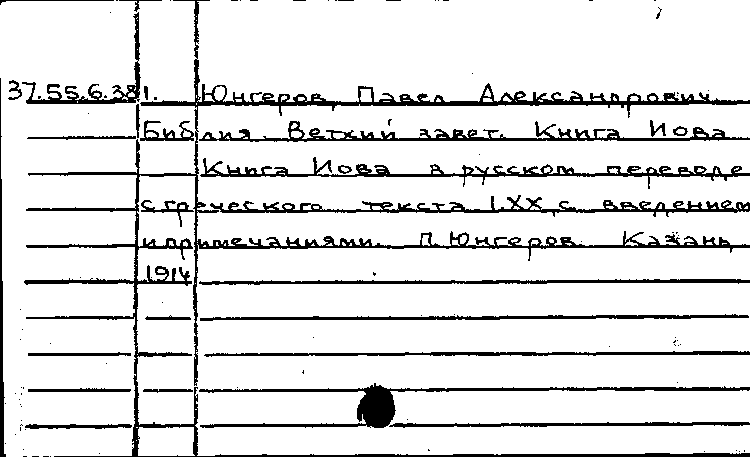 37.55.6.38 1. Юнгеров, Павел Александрович
Библия. Ветхий завет. Книга Иова
Книга Иова в русском переводе
с греческого текста LXX, с введением
и примечаниями. П. Юнгеров. Казань,
1914